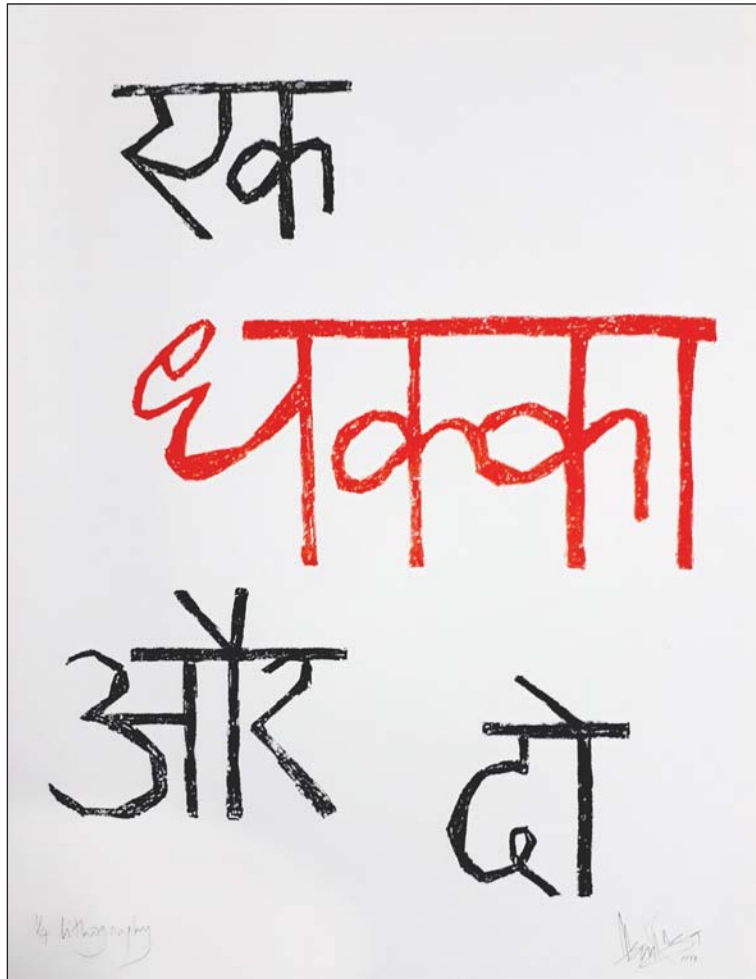 एक
धक्का
और दो
1/4 lithography